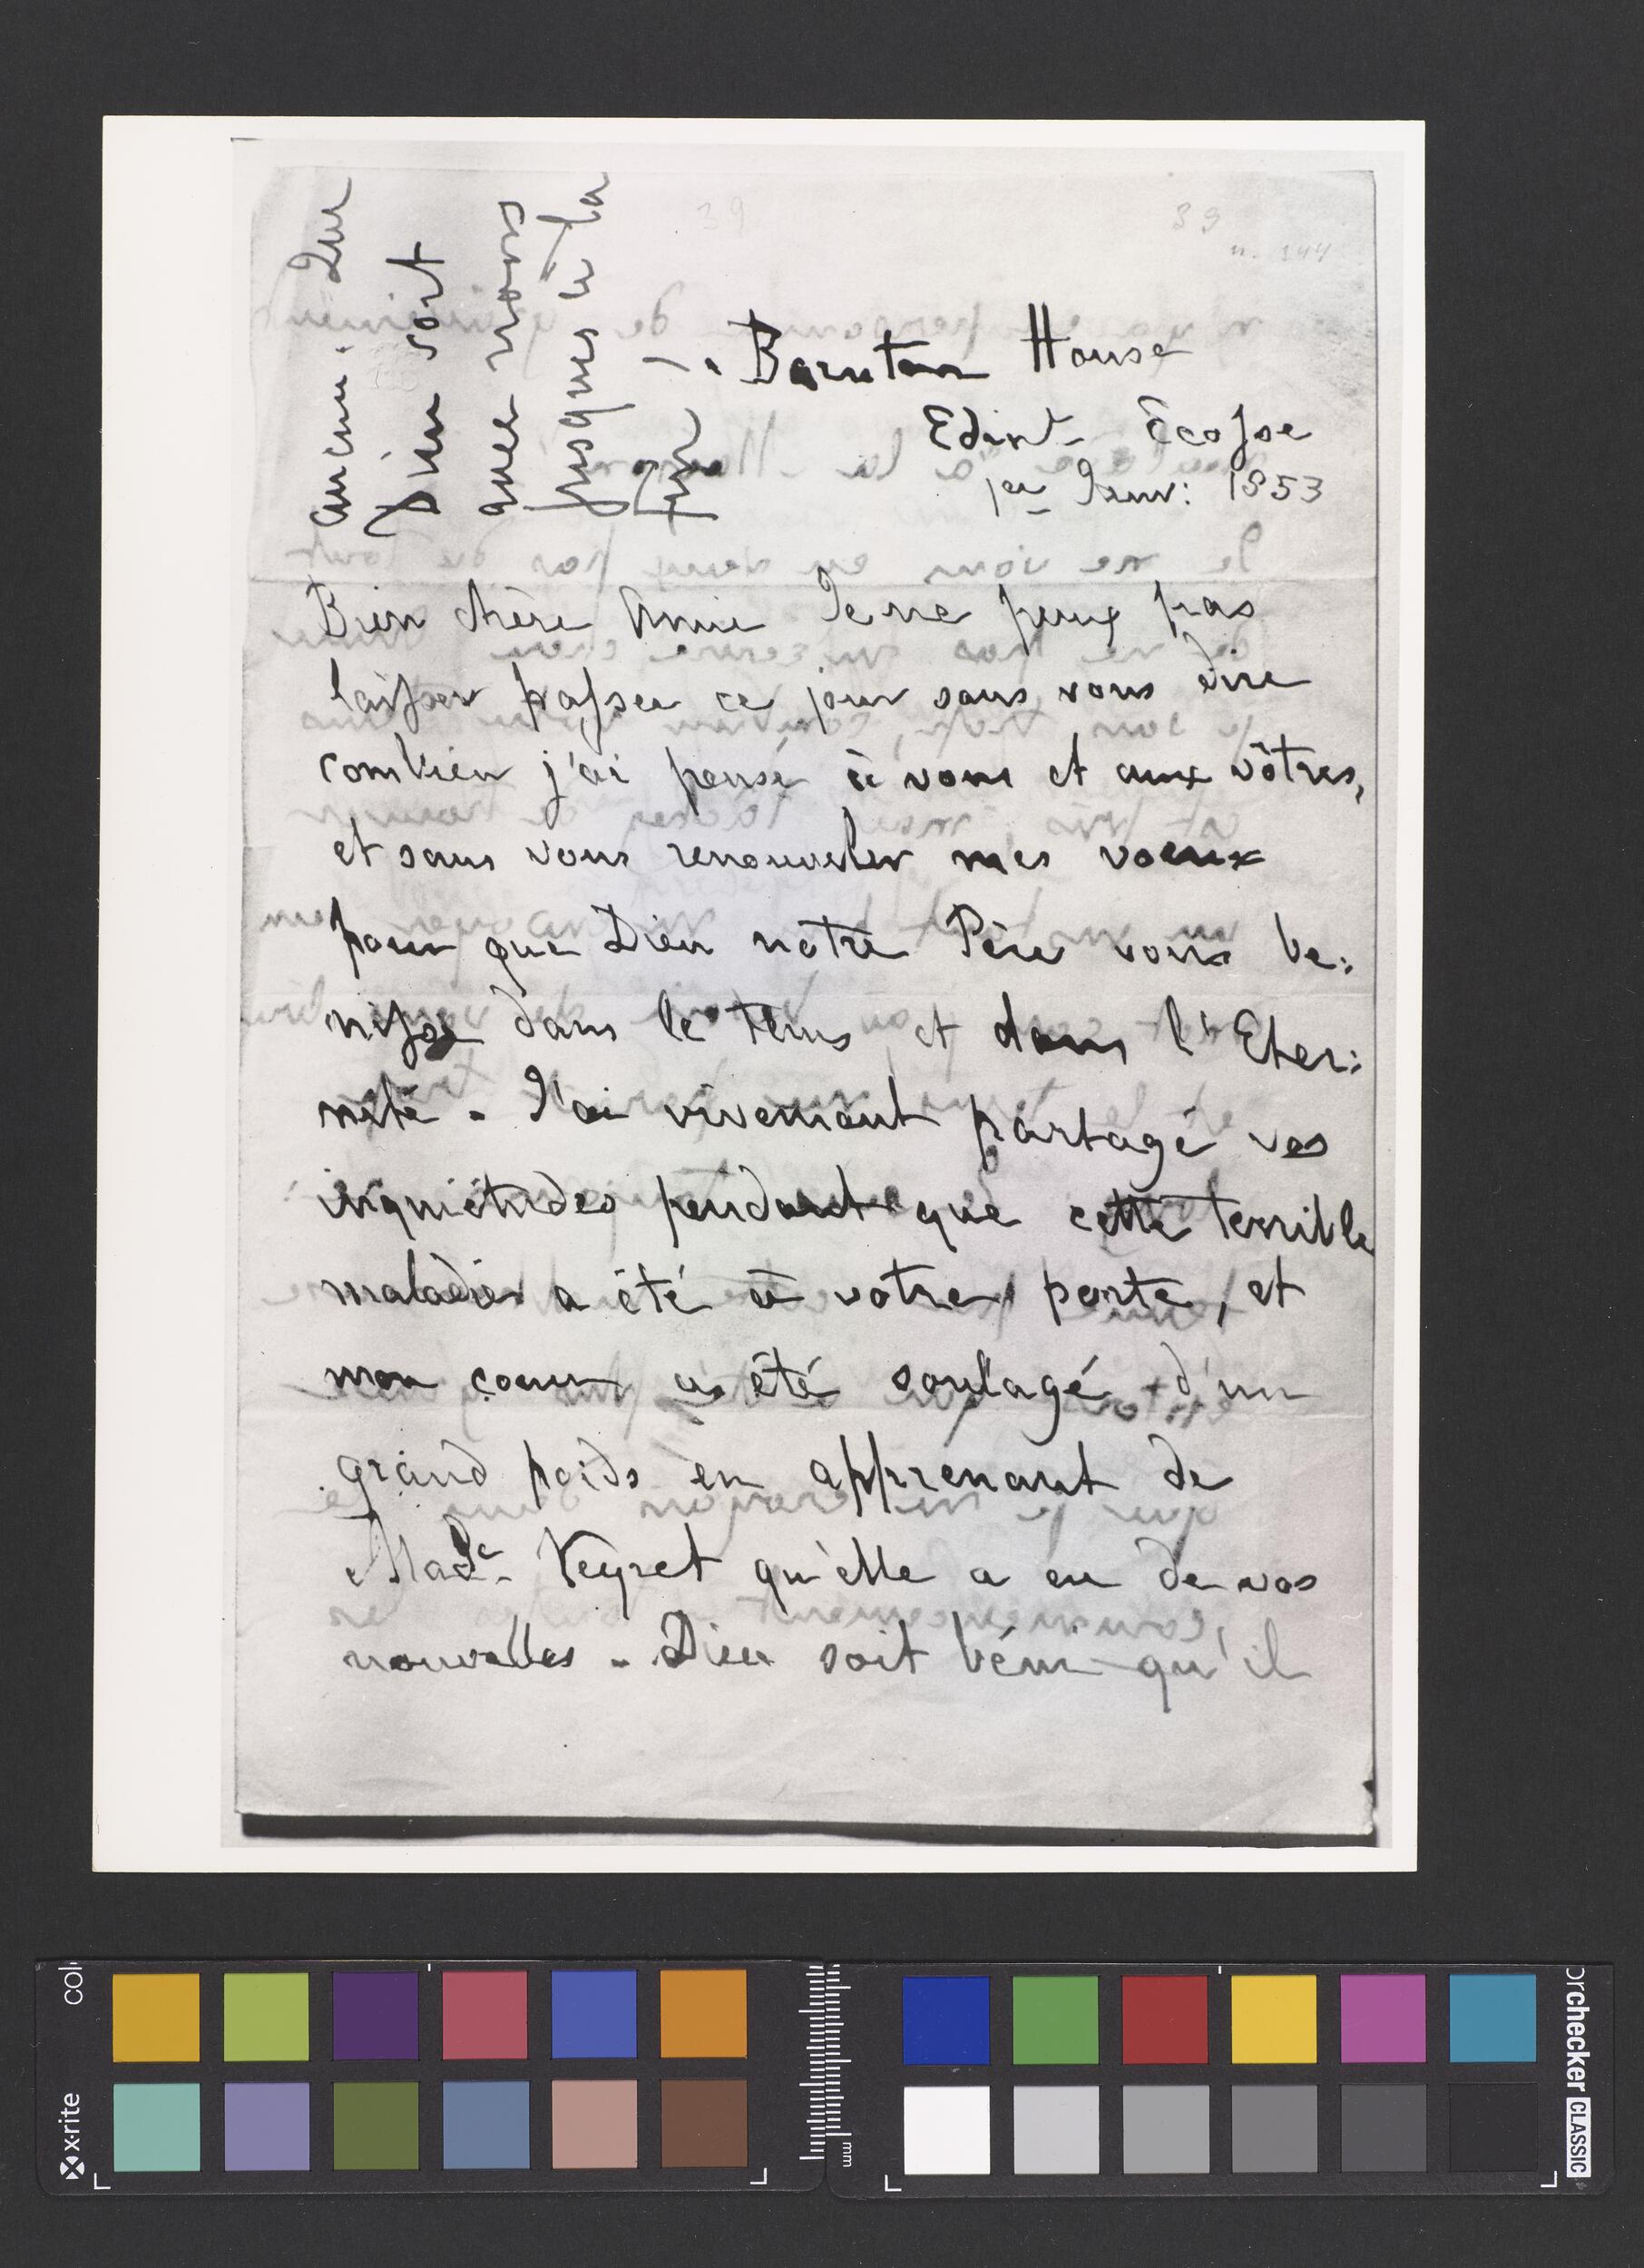 39
39
n. 144
Barnton House
Edinb. Ecosse
1er Janv: 1853
Bien chère Amie Je ne peux pas
laisser passer ce jour sans vous dire
combien j'ai pensé à vous et aux vôtres,
et sans vous renouveler mes voeux
pour que Dieu notre Père vous be:
nisse dans le tems et dans l'Eter:
nité. J'ai vivement partagé vos
inquiétudes pendant que cette terrible
maladie a été à votre porte, et
mon coeur a été soulagé d'un
grand poids en apprenant de
Made. Veyret qu'elle a eu de vos
nouvelles. Dieu soit béni qu'il
ancien. Que
Dieu soit
avec nous
jusques à la
fin
x-rite
colorchecker CLASSIC
mm